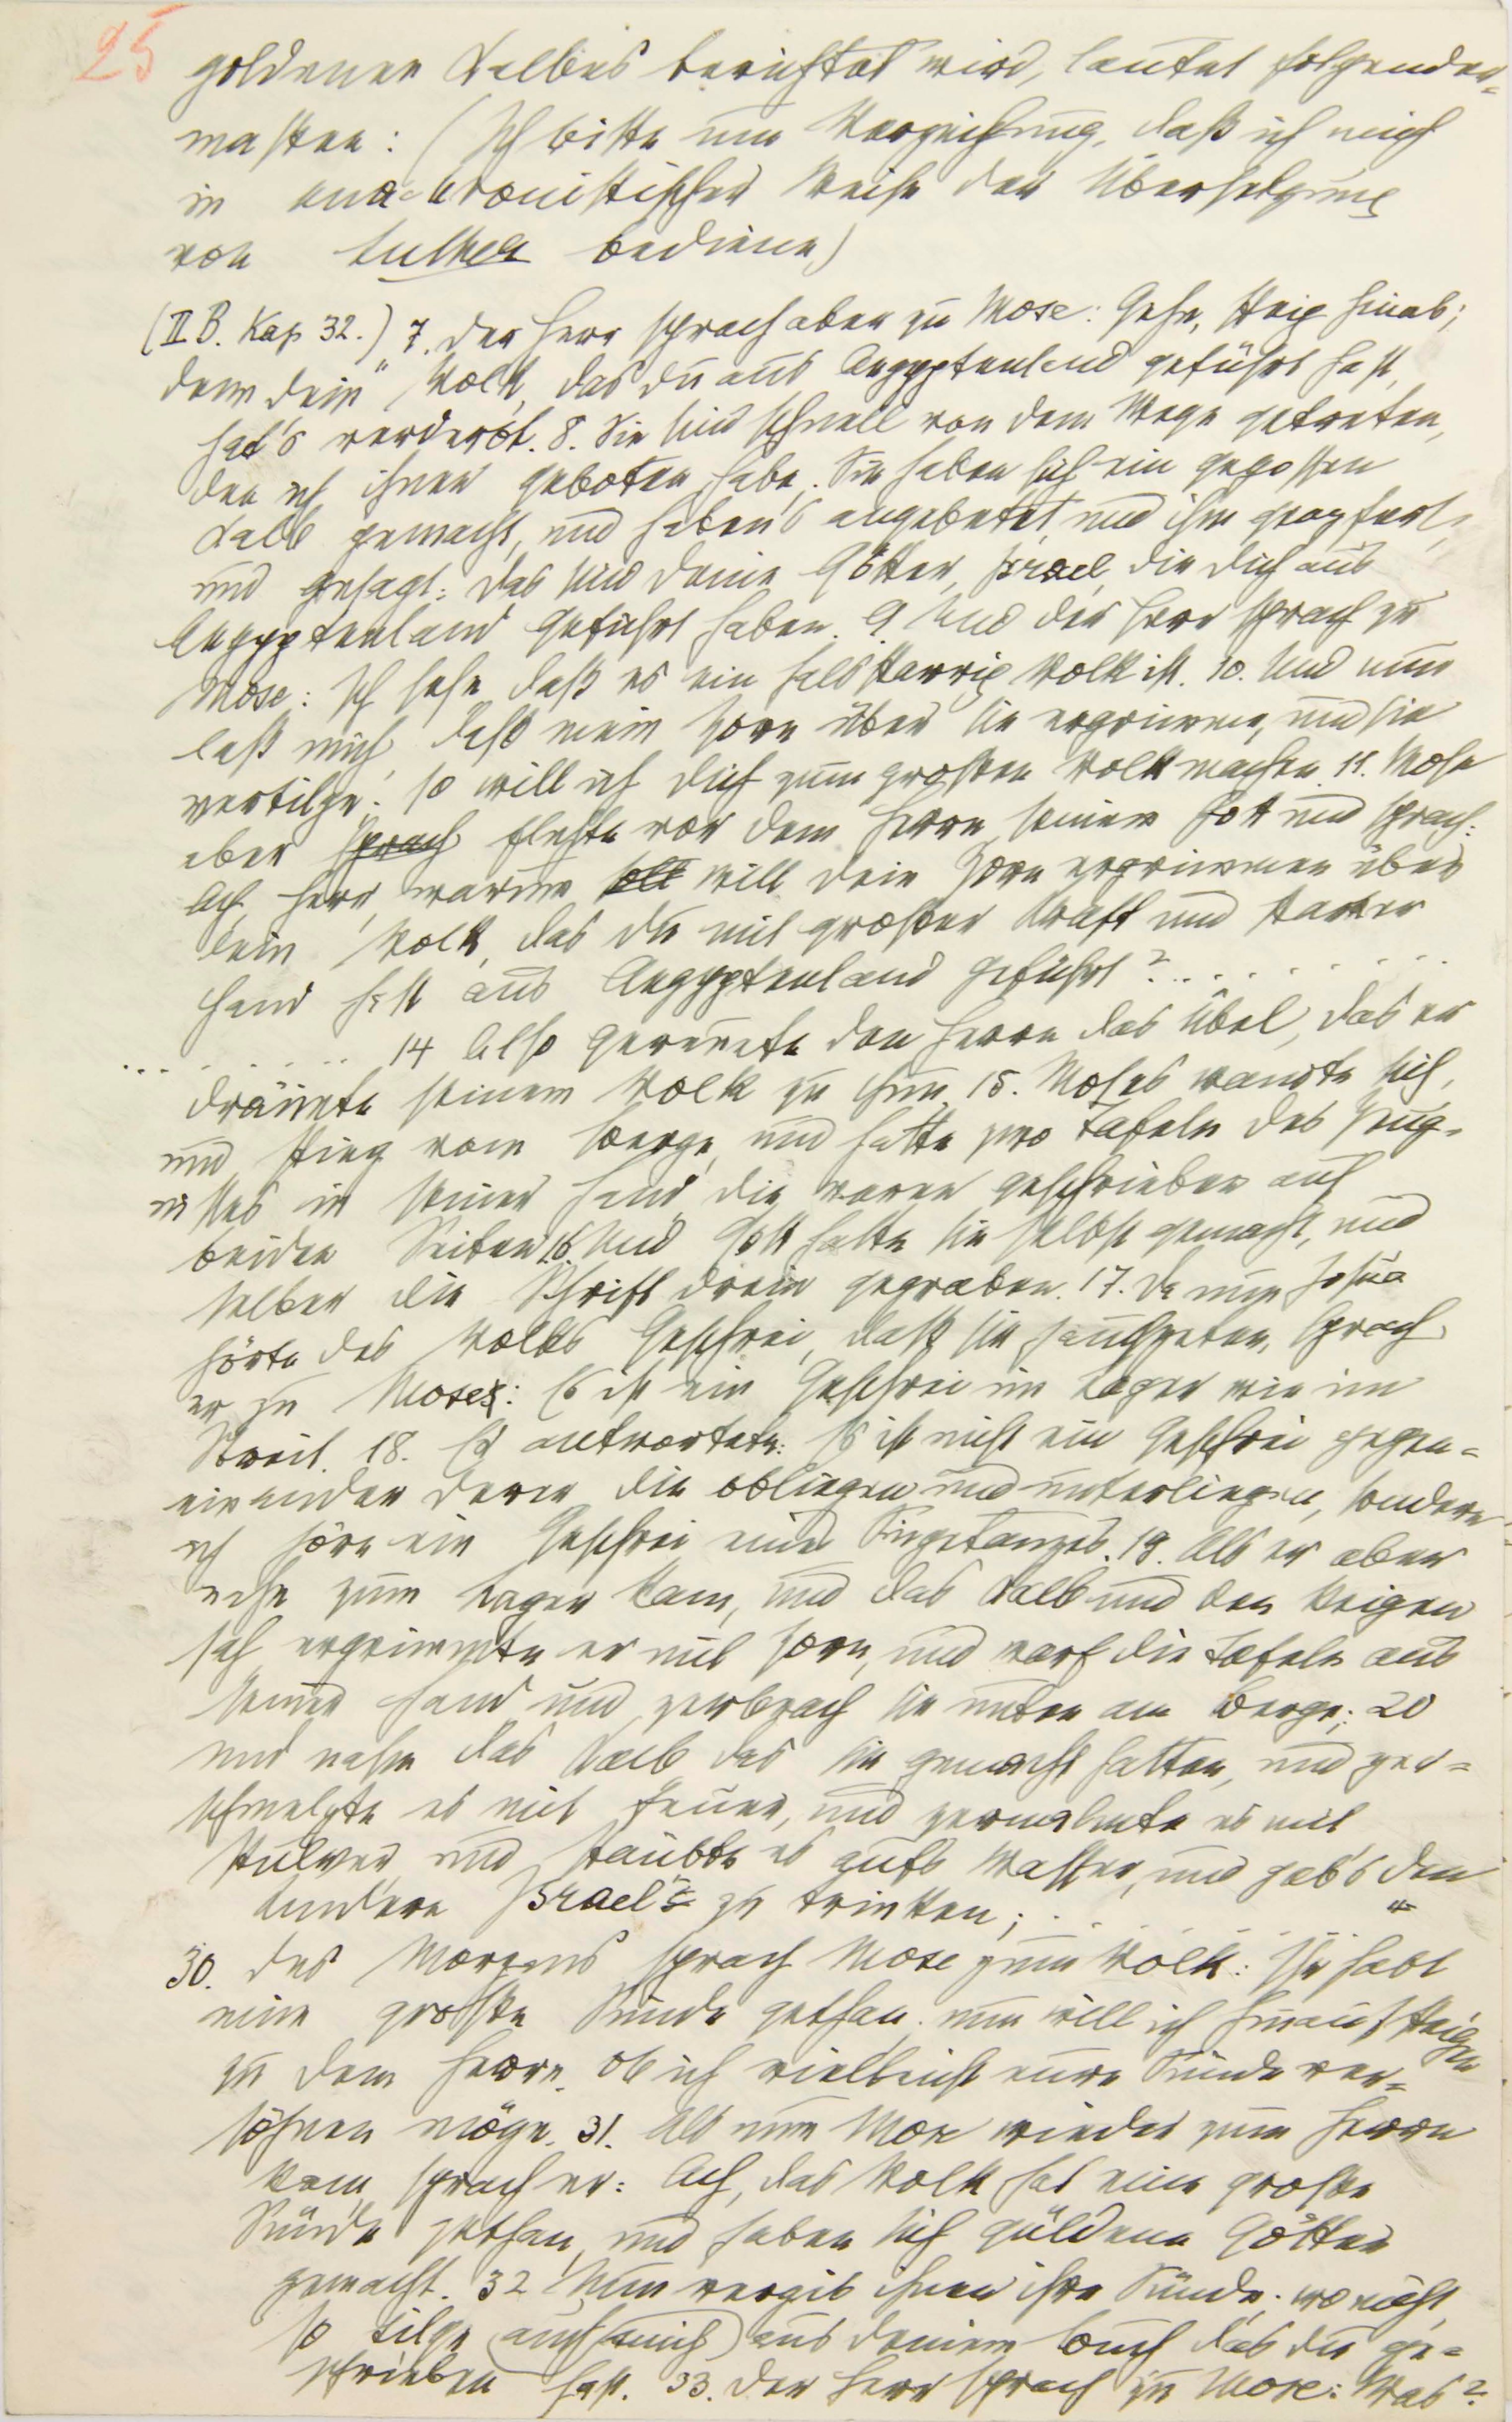 25
goldenen Kalbes berichtet wird, lautet folgender=
massen: (Ich bitte um Verzeihung, daß ich mich
in anachronistischer Weise der Übersetzung
von Luther bediene)
(II B. Kap 32.) "7. Der Herr sprach aber zu Mose: Gehe, steig hinab;
denn dein Volk, das du aus Aegyptenland geführt hast,
hat's verderbt. 8. Sie sind schnell von dem Wege getreten,
den ich ihnen geboten habe. Sie haben sich ein gegossen
Kalb gemacht, und haben's angebetet und ihm geopfert,
und gesagt: Das sind deine Götter, Israel, die dich aus
Aegyptenland geführt haben. 9 Und der Herr sprach zu
Mose: Ich sehe, daß es ein halsstarrig Volk ist. 10. Und nun
laß mich, daß mein Zorn über sie ergrimme, und sie
vertilge; so will ich dich zum großen Volk machen. 11. Mose
aber sprach flehte vor dem Herrn, seinem Gott und sprach:
Ach, Herr, warum will dein Zorn ergrimmen über
dein Volk, das du mit großer Kraft und starker
Hand hast aus Aegyptenland geführt? . . . . . . . . .
. . . . . . . . 14 Also gereuete den Herrn das Übel, das er
dräuete seinem Volk zu thun. 15. Moses wandte sich,
und stieg vom Berge, und hatte zwo Tafeln des Zeug-
nisses in seiner Hand, die waren geschrieben auf
beiden Seiten. 16. Und Gott hatte sie selbst gemacht, und
selber die Schrift drein gegraben. 17. Da nun Josua
hörte des Volks Geschrei, daß sie jauchzeten, sprach
er zu Mose: Es ist ein Geschrei im Lager wie im
Streit. 18. Er antwortete: Es ist nicht ein Geschrei gegen=
einander derer die obliegen und unterliegen, sondern
ich höre ein Geschrei eines Singetanzes. 19. Als er aber
nahe zum Lager kam, und das Kalb und den Reigen
sah, ergrimmte er mit Zorn, und warf die Tafeln aus
seiner Hand und zerbrach sie unten am Berge; 20
und nahm das Kalb das sie gemacht hatten, und zer=
schmelzte es mit Feuer, und zermalmte es mit
Pulver, und stäubte es aufs Wasser, und gab's den
Kindern Israel's zu trinken; . . . . . . . "
30. Des Morgens sprach Mose zum Volk: Ihr habt
eine große Sünde gethan; nun will ich hinaufsteigen
zu dem Herrn, ob ich vielleicht eure Sünde ver=
söhnen möge. 31. Als nun Mose wieder zum Herrn
kam, sprach er: Ach, das Volk hat eine große
Sünde gethan, und haben sich güldene Götter
gemacht. 32 Nun vergib ihnen ihre Sünde; wo nicht,
so tilge (auch mich) aus deinem Buch das du ge=
schrieben hast. 33. Der Herr sprach zu Mose: Was?